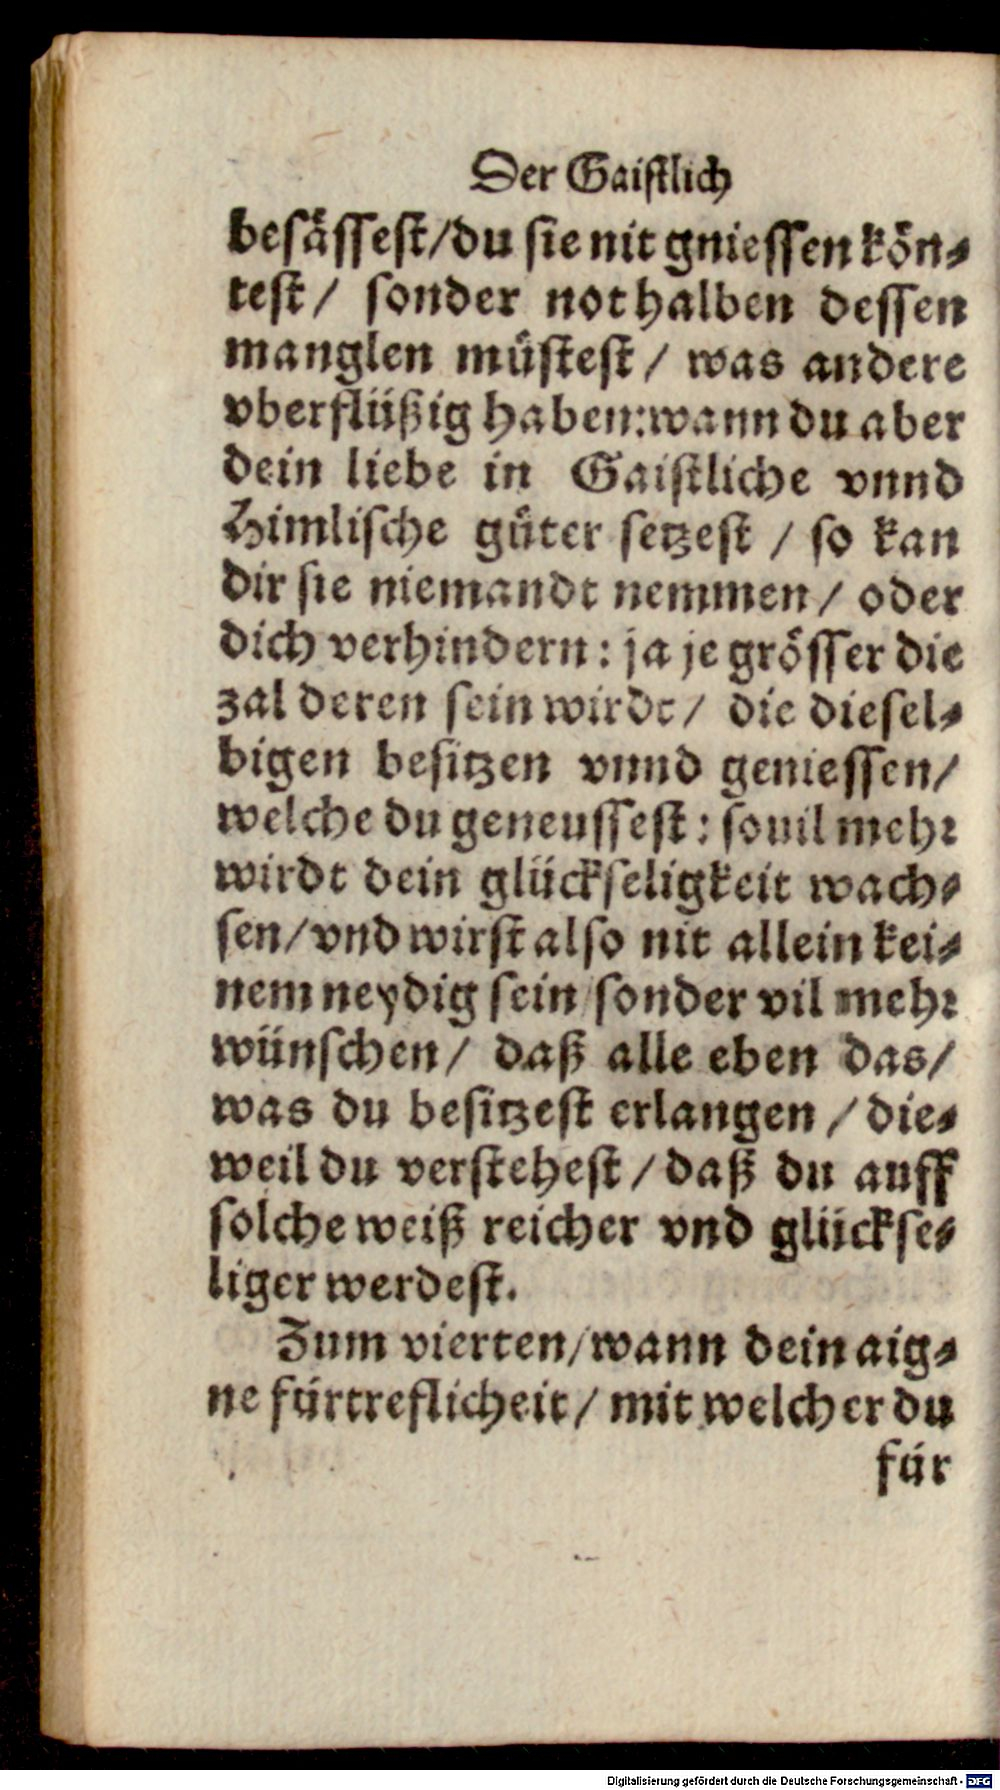 Der Gaistlich
besässest/du sie nit gniessen kön-
test/ sonder nothalben dessen
manglen müstest/ was andere
vberflüßig haben: wann du aber
dein liebe in Gaistliche vnnd
Himlische güter setzest / so kan
dir sie niemandt nemmen/ oder
dich verhindern: ja je grösser die
zal deren sein wirdt/ die diesel-
bigen besitzen vnnd geniessen/
welche du geneussest: souil mehr
wirdt dein glückseligkeit wach-
sen/vnd wirst also nit allein kei-
nem neydig sein/sonder vil mehr
wünschen/ daß alle eben das/
was du besitzest erlangen / die-
weil du verstehest / daß du auff
solche weiß reicher vnd glückse-
liger werdest.
Zum vierten/wann dein aig-
ne fürtreflicheit/ mit welcher du
für
Digitalisierung gefördert durch die Deutsche Forschungsgemeinschaft - DFG